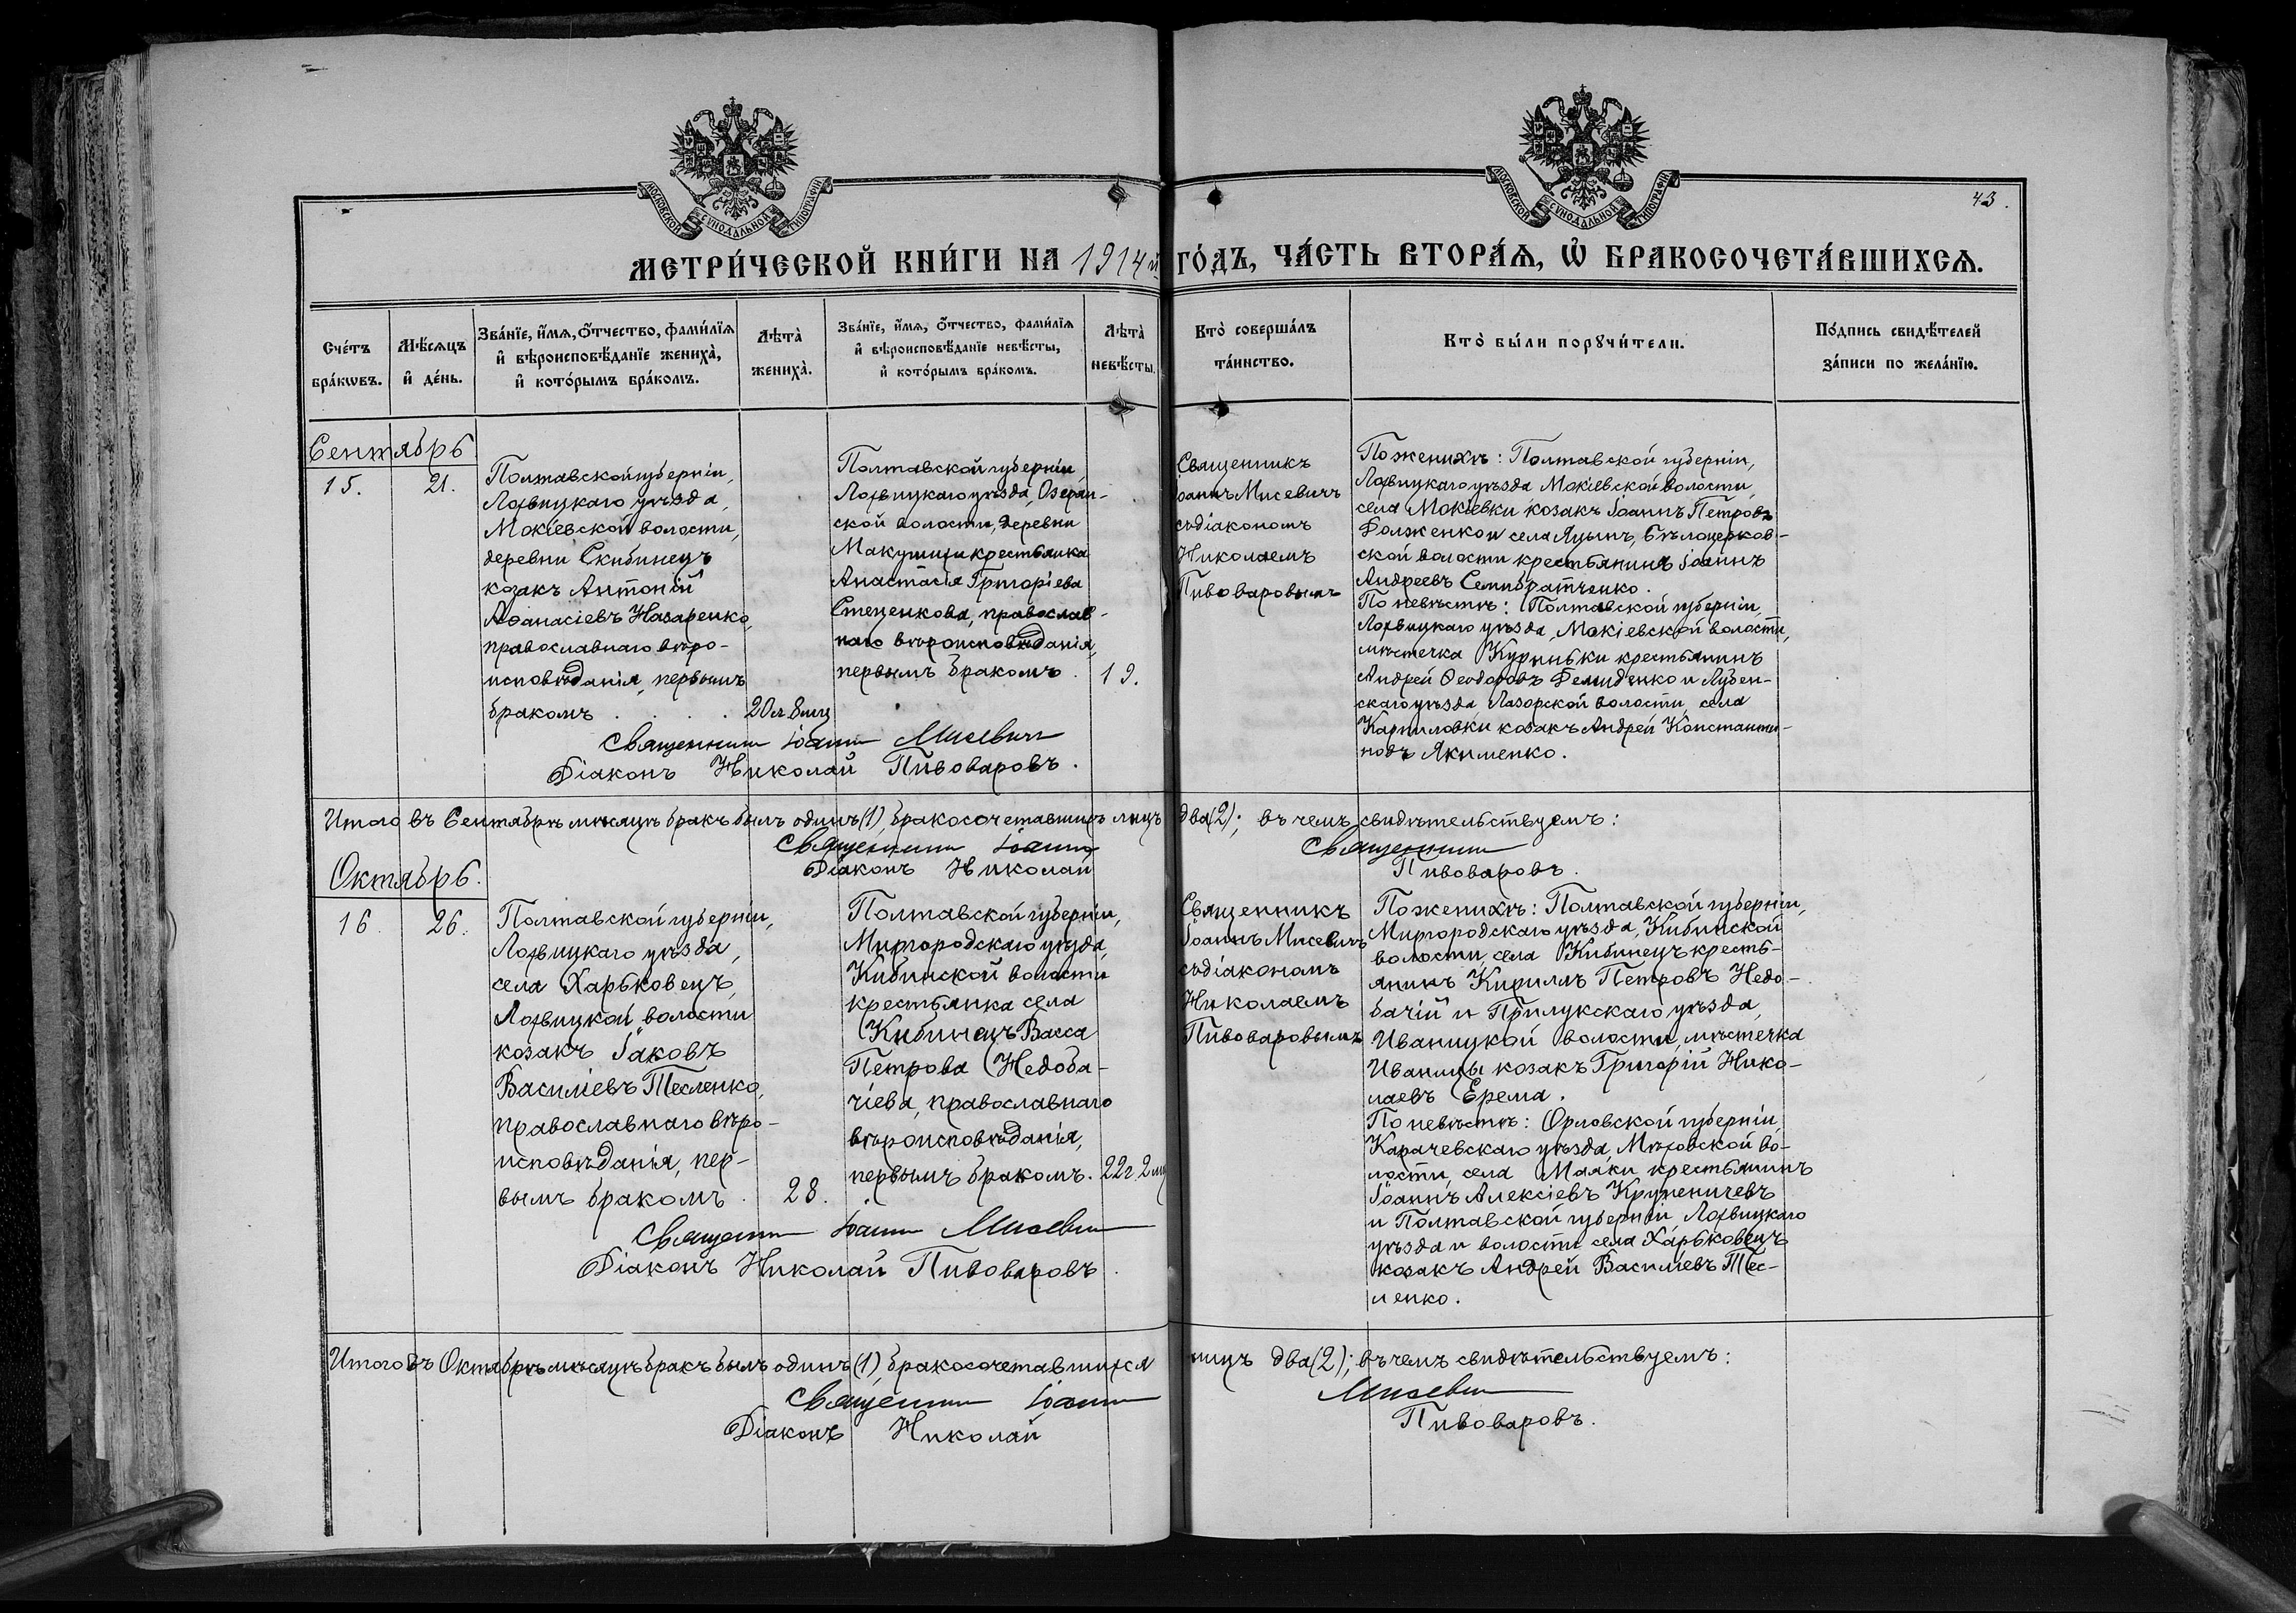 МОСКОВСКОЙ СѴНОДАЛЬНОЙ ТИПОГРАФІИ
МОСКОВСКОЙ СѴНОДАЛЬНОЙ ТИПОГРАФІИ
43.
МЕТРИ́ЧЕСКОЙ КНИ́ГИ НА 1914й ГО́ДЪ, ЧА́СТЬ ВТОРА́Ѧ, Ѡ҆ БРАКОСОЧЕТА́ВШИХСѦ.
Сче́тъ
бра́кѡвъ.
Мѣ́сѧцъ
и҆ де́нь.
Зва́нїе, и҆́мѧ, ѻ҆́тчество, фами́лїѧ
и҆ вѣроисповѣ́данїе жениха̀,
и҆ кото́рымъ бра́комъ.
Лѣта̀
жениха̀.
Зва́нїе, и҆́мѧ, ѻ҆́тчество, фами́лїѧ
и҆ вѣроисповѣ́данїе невѣ́сты,
и҆ кото́рымъ бра́комъ.
Лѣта̀
невѣ́сты.
Кто̀ соверша́лъ
та́инство.
Кто̀ бы́ли порꙋчи́тели.
По́дпись свидѣ́телей
за́писи по жела́нїю.
Сентябрь
15.
21.
Полтавской губерніи,
Лохвицкаго уѣзда,
Мокіевской волости,
деревни Скибинецъ
козакъ Антоній
Аѳанасіевъ Назаренко,
православнаго вѣро-
исповѣданія, первымъ
бракомъ
20л. 8мц
Полтавской губерніи
Лохвицкаго уѣзда, Озерян-
ской волости, деревни
Макушихи крестьянка
Анастасія Григоріева
Стеценкова, православ-
наго вѣроисповѣданія,
первымъ бракомъ.
19.
Священникъ
Іоаннъ Мисевичъ
съ діакономъ
Николаемъ
Пивоваровымъ
По женихѣ: Полтавской губерніи,
Лохвицкаго уѣзда Мокіевской волости,
села Мокіевки козакъ Іоаннъ Петровъ
Долженко и села Яцынъ, Бѣлоцерков-
ской волости крестьянинъ Іоаннъ
Андреевъ Семибратченко.
По невѣстѣ: Полтавской губерніи,
Лохвицкаго уѣзда, Мокіевской волости,
мѣстечка Куриньки крестьянинъ
Андрей Ѳеодоровъ Демиденко и Лубен-
скаго уѣзда, Лазорской волости, села
Карпиловки козакъ Андрей Константи-
новъ Якименко.
Священникъ Іоаннъ Мисевичъ
Діаконъ Николай Пивоваровъ.
Итого въ Сентябрѣ мѣсяцѣ бракъ былъ одинъ (1), бракосочетавшихъ лицъ два (2); въ чемъ свидѣтельствуемъ:
Священникъ Іоаннъ
Діаконъ Николай Пивоваровъ.
Октябрь.
16.
26.
Полтавской губерніи,
Лохвицкаго уѣзда,
села Харьковецъ,
Лохвицкой волости
козакъ Іаковъ
Василіевъ Тесленко,
православнаго вѣро-
исповѣданія, пер-
вымъ бракомъ.
28.
Полтавской губерніи,
Миргородскаго уѣзда,
Кибинской волости
крестьянка села
Кибинецъ Васса
Петрова Недоба-
чіева, православнаго
вѣроисповѣданія,
первымъ бракомъ.
22г. 2мц
Священникъ
Іоаннъ Мисевичъ
съ діакономъ
Николаемъ
Пивоваровымъ
По женихѣ: Полтавской губерніи,
Миргородскаго уѣзда, Кибинской
волости, села Кибинецъ кресть-
янинъ Кириллъ Петровъ Недо-
бачій и Прилукскаго уѣзда,
Иваницкой волости, мѣстечка
Иваницы козакъ Григорій Нико-
лаевъ Ерема.
По невѣстѣ: Орловской губерніи,
Карачевскаго уѣзда, во-
лости, села Маяки крестьянинъ
Іоаннъ Алексіевъ Крупеничевъ
и Полтавской губерніи Лохвицкаго
уѣзда и волости села Харьковецъ
козакъ Андрей Василіевъ Тес-
ленко.
Священникъ Іоаннъ Мисевичъ
Діаконъ Николай Пивоваровъ
Итого въ Октябрѣ мѣсяцѣ бракъ былъ одинъ (1), бракосочетавшихся лицъ два (2); въ чемъ свидѣтельствуемъ:
Священникъ Іоаннъ Мисевичъ
Діаконъ Николай Пивоваровъ.